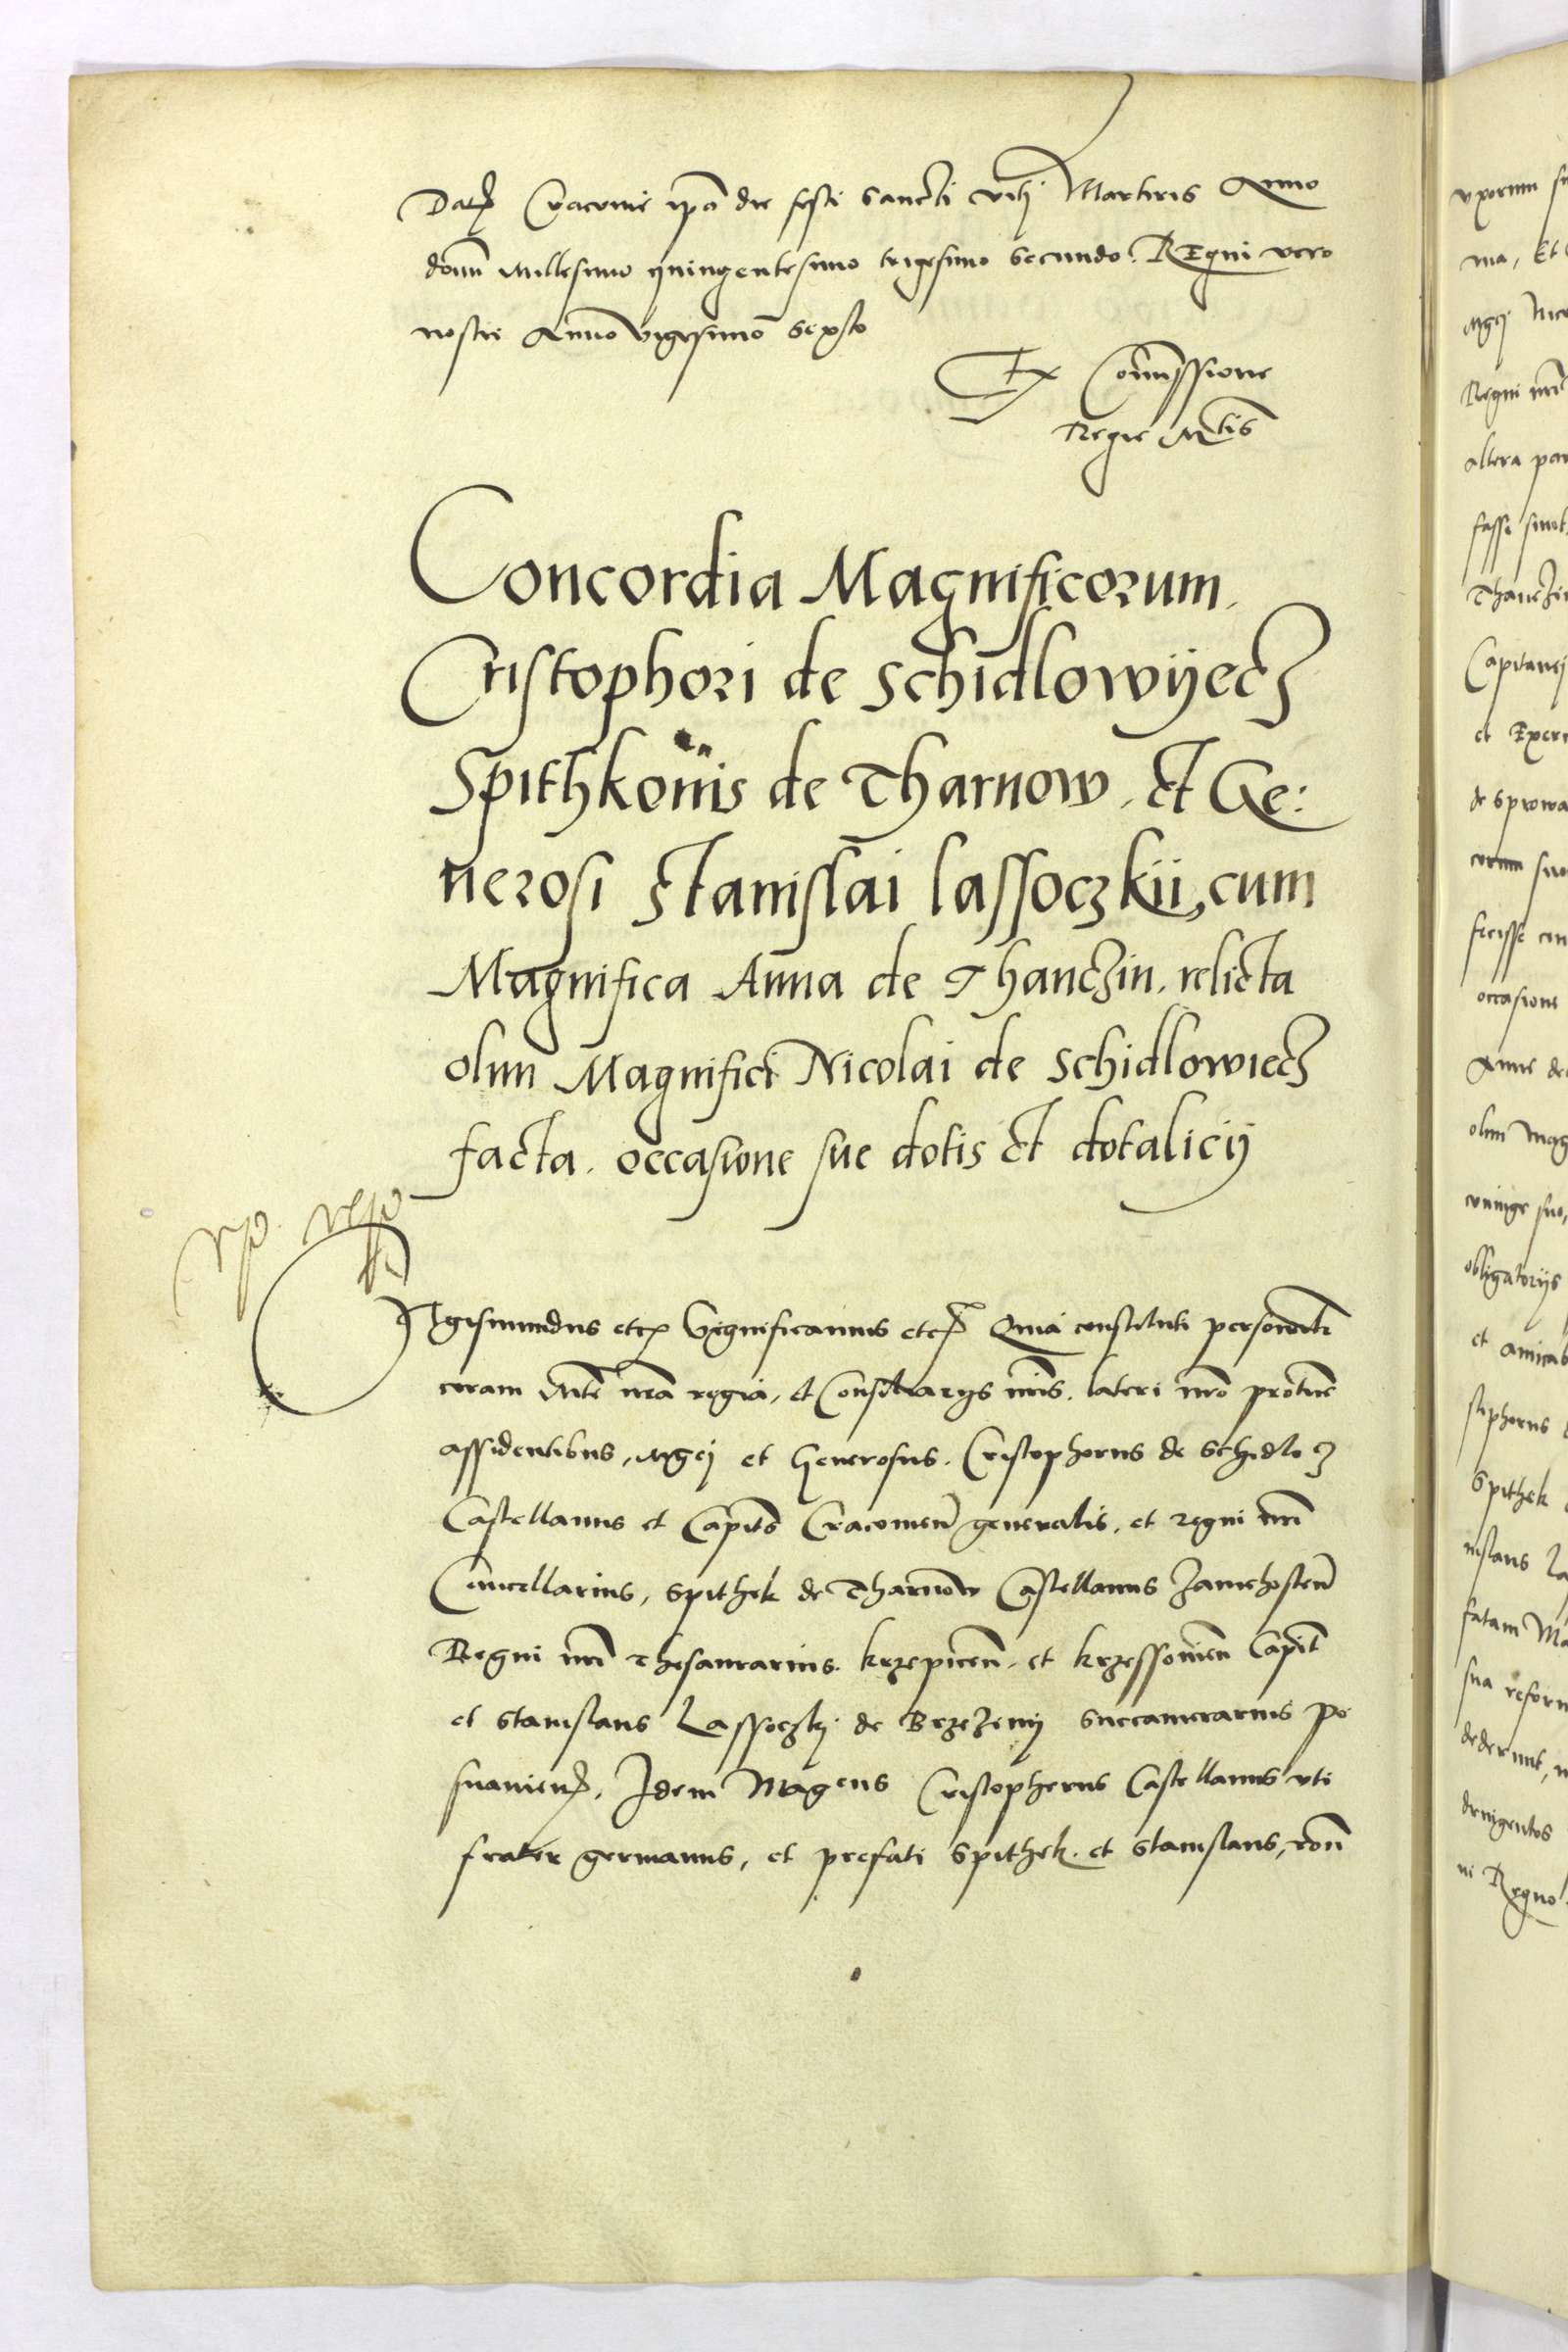 Dat Cracovie ipo die festi Sancti viti Martiris Anno
domi Millesimo quingentesimo trigesimo secundo. REgni vero
nostri Anno vigesimo sexto
Ex Comissione
Regie Mtis
Concordia Magnificorum.
Cristophori de Schidlowijecz
Spithkonis de Tharnow. Et Ge:
nerosi Stanislai lassoczkii, cum
Magnifica Anna de Thanczin. relicta
olim Magnifici Nicolai de Schidlowiecz
facta. occasione sue dotis Et dotalicij
SIgismundus etc Significamus etc Quia constituti personalit
coram Mte nra regia, et Consiliarijs nris. lateri nro protunc
assidentibus, Mgci et Generosus. Cristophorus de Schidlo
Castellanus et Capits Cracovien generalis, et regni nri
Cancellarius, Spithek de Tharnow Castellanus Zavichosten
Regni nri Thesaurarius. krzepicen. et krzessovien Capit
et Stanislaus Lassoczky de Brzezeny Succamerarius Po
snanien, Idem Magcus Cristophorus Castellanus uti
frater germanus, et prefati Spithek. et Stanislaus, coni
uxorum
ma, Et
Mgci Nico
Regni nri
altera par
fassi sunt
Thanczin
Capitanei
et Exerc
de Sprowa
eorum suo
fecisse con
occasione
Anne de
olim Mag
coniuge suo,
obligatorijs
et amicab
stophorus
Spithek
nislaus La
fatam Ma
sua reform
dederunt,
ni Regno